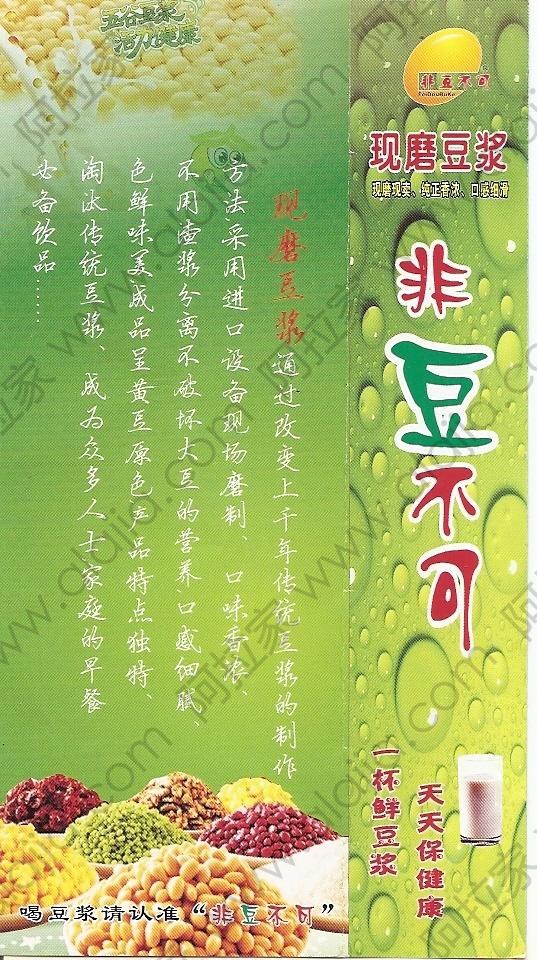 五谷豆浆
活力健康
现磨豆浆通过改变上千年传统豆浆的制作
方法采用进口设备现场磨制、口味香浓、
不用渣浆分离不破坏大豆的营养口感细腻、
色鲜味美成品呈黄豆原色产品特点独特、
淘汰传统豆浆、成为众多人士家庭的早餐
必备饮品……
喝豆浆请认准“非豆不可”
非豆不可
FeiDouBuKe
现磨豆浆
现磨现卖、纯正香浓、口感细滑
非豆不可
一杯鲜豆浆
天天保健康
阿拉家 www.alajia.com